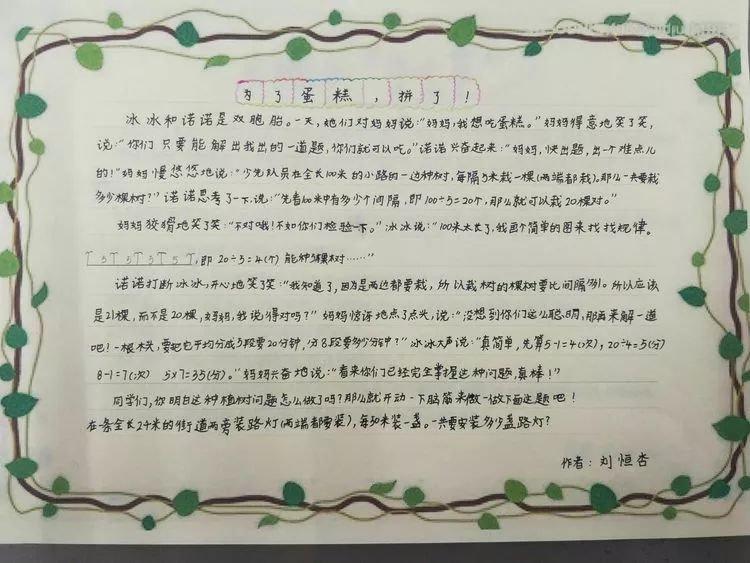 为了蛋糕，拼了！
冰冰和诺诺是双胞胎。一天，她们对妈妈说：“妈妈，我想吃蛋糕。”妈妈得意地笑了笑，
说：“你们只要能解出我出的一道题，你们就可以吃。”诺诺兴奋起来：“妈妈，快出题，出一个难点儿
的！”妈妈慢悠悠地说：“少先队员在全长100米的小路的一边种树，每隔5米栽一棵（两端都栽）。那么一共要栽
多少棵树？”诺诺思考了一下，说：“先看100米中有多少个间隔，即100÷5=20个，那么就可以栽20棵对。”
妈妈狡猾地笑了笑：“不对哦！不如你们检验一下。”冰冰说：“100米太长了，我画个简单的图来找找规律。
5 5 5 5，即20÷5=4(个) 能种棵树……”
诺诺打断冰冰，开心地笑了笑：“我知道了，因为是两边都要栽，所以栽树的棵树要比间隔多1。所以应该
是21棵，而不是20棵，妈妈，我说得对吗？”妈妈惊讶地点了点头，说：“没想到你们这么聪明，那再来解一道
吧！一根木头，要把它平均分成5段要20分钟，分8段要多少分钟？”冰冰大声说：“真简单，先算5-1=4(次)，20÷4=5(分)
8-1=7(次) 5×7=35(分)。”妈妈兴奋地说：“看来你们已经完全掌握这种问题，真棒！”
同学们，你明白这种植树问题怎么做了吗？那么就开动一下脑筋来做一做下面这题吧！
在一条全长2千米的街道两旁装路灯（两端都要装），每50米装一盏。一共要安装多少盏路灯？
作者：刘恒杏